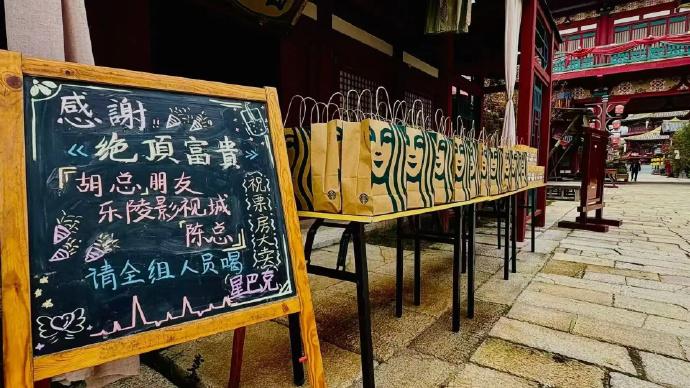 感謝
《绝頂富貴》
「胡总朋友
乐陵影视城
陈总」
祝票房大卖
请全组人员喝
星巴克